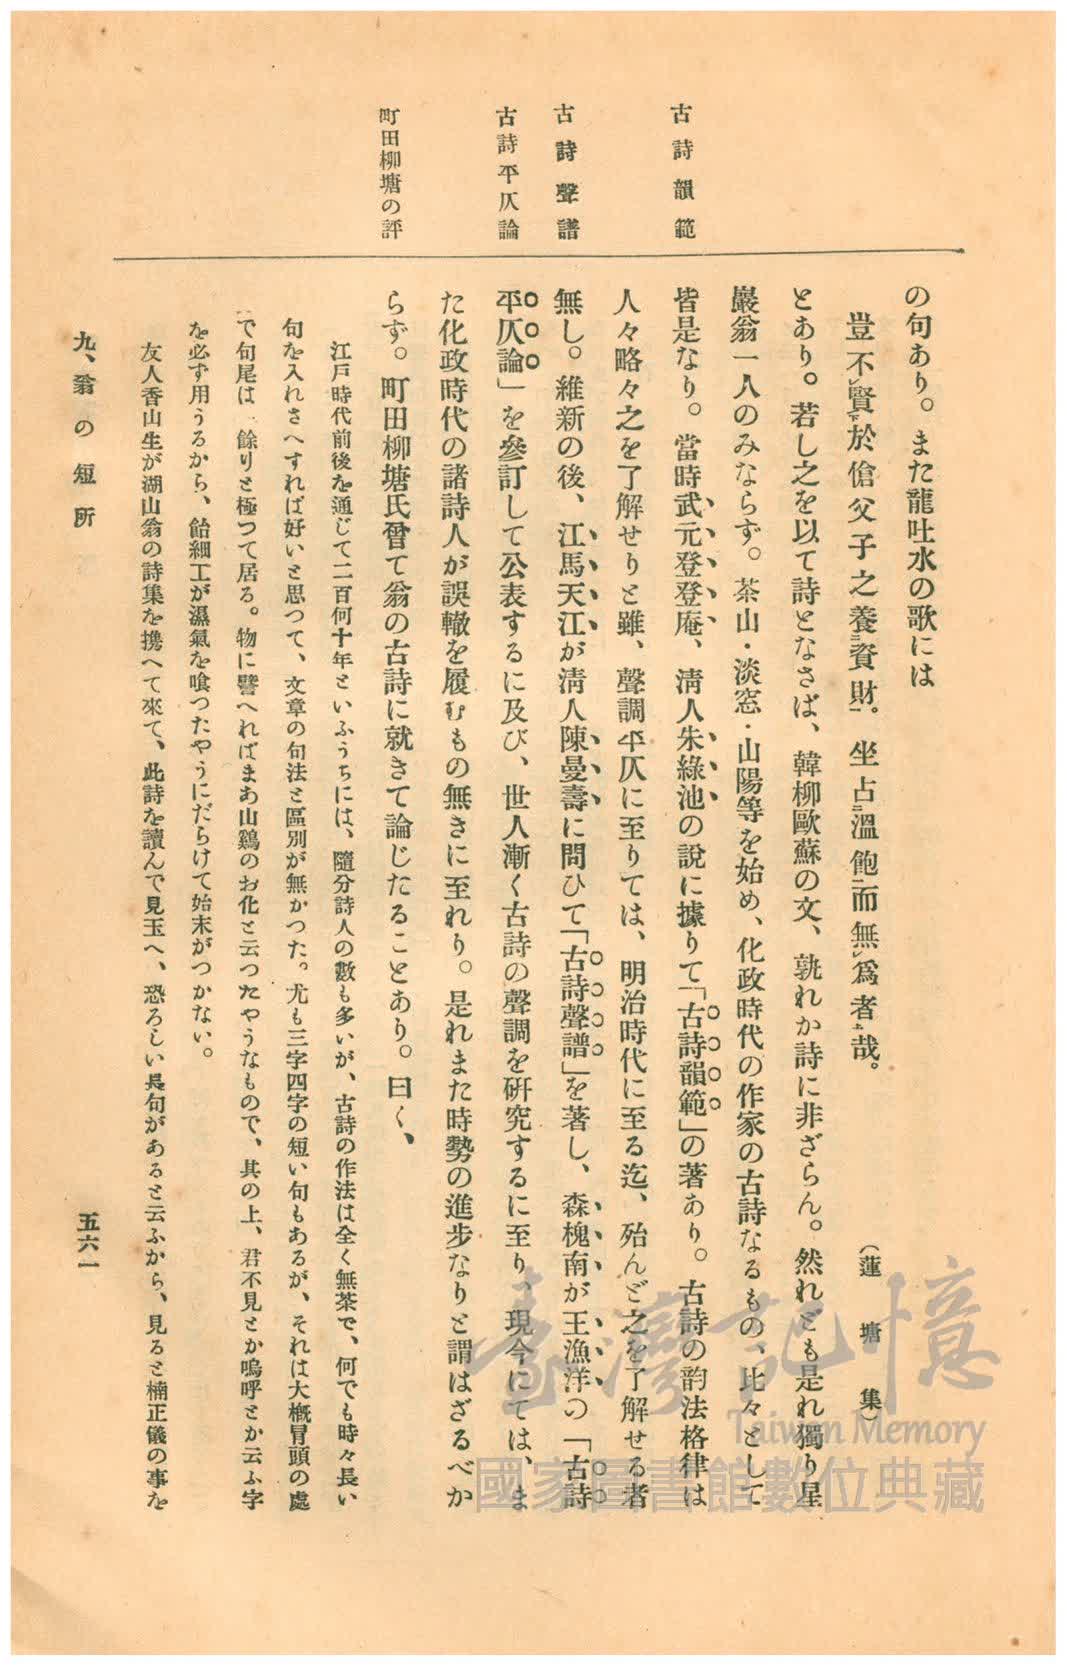 古詩韻範
古詩聲譜
古詩平仄論
町田柳塘の評
の句あり。また龍吐水の歌には
豈不レ賢下於傖父子之養二資財一。坐占二溫飽一而無レ爲者上哉。（蓮塘集）
とあり。若し之を以て詩となさば、韓柳歐蘇の文、孰れか詩に非ざらん。然れども是れ獨り星
巖翁一人のみならず。茶山・淡窓・山陽等を始め、化政時代の作家の古詩なるもの、比々として
皆是なり。當時武元登登庵、淸人朱綠池の說に據りて「古詩韻範」の著あり。古詩の韵法格律は
人々略々之を了解せりと雖、聲調平仄に至りては、明治時代に至る迄、殆んど之を了解せる者
無し。維新の後、江馬天江が淸人陳曼壽に問ひて「古詩聲譜」を著し、森槐南が王漁洋の「古詩
平仄論」を參訂して公表するに及び、世人漸く古詩の聲調を硏究するに至り、現今にては、ま
た化政時代の諸詩人が誤轍を履むもの無きに至れり。是れまた時勢の進步なりと謂はざるべか
らず。町田柳塘氏曾て翁の古詩に就きて論じたることあり。曰く、
江戶時代前後を通じて二百何十年といふうちには、隨分詩人の數も多いが、古詩の作法は全く無茶で、何でも時々長い
句を入れさへすれば好いと思つて、文章の句法と區別が無かつた。尤も三字四字の短い句もあるが、それは大槪冒頭の處
で句尾は、餘りと極つて居る。物に譬へればまあ山鷄のお化と云つたやうなもので、其の上、君不見とか嗚呼とか云ふ字
を必ず用うるから、飴細工が濕氣を喰つたやうにだらけて始末がつかない。
友人香山生が湖山翁の詩集を携へて來て、此詩を讀んで見玉へ、恐ろしい長句があると云ふから、見ると楠正儀の事を
九、翁の短所
五六一
臺灣記憶
Taiwan Memory
國家圖書館數位典藏